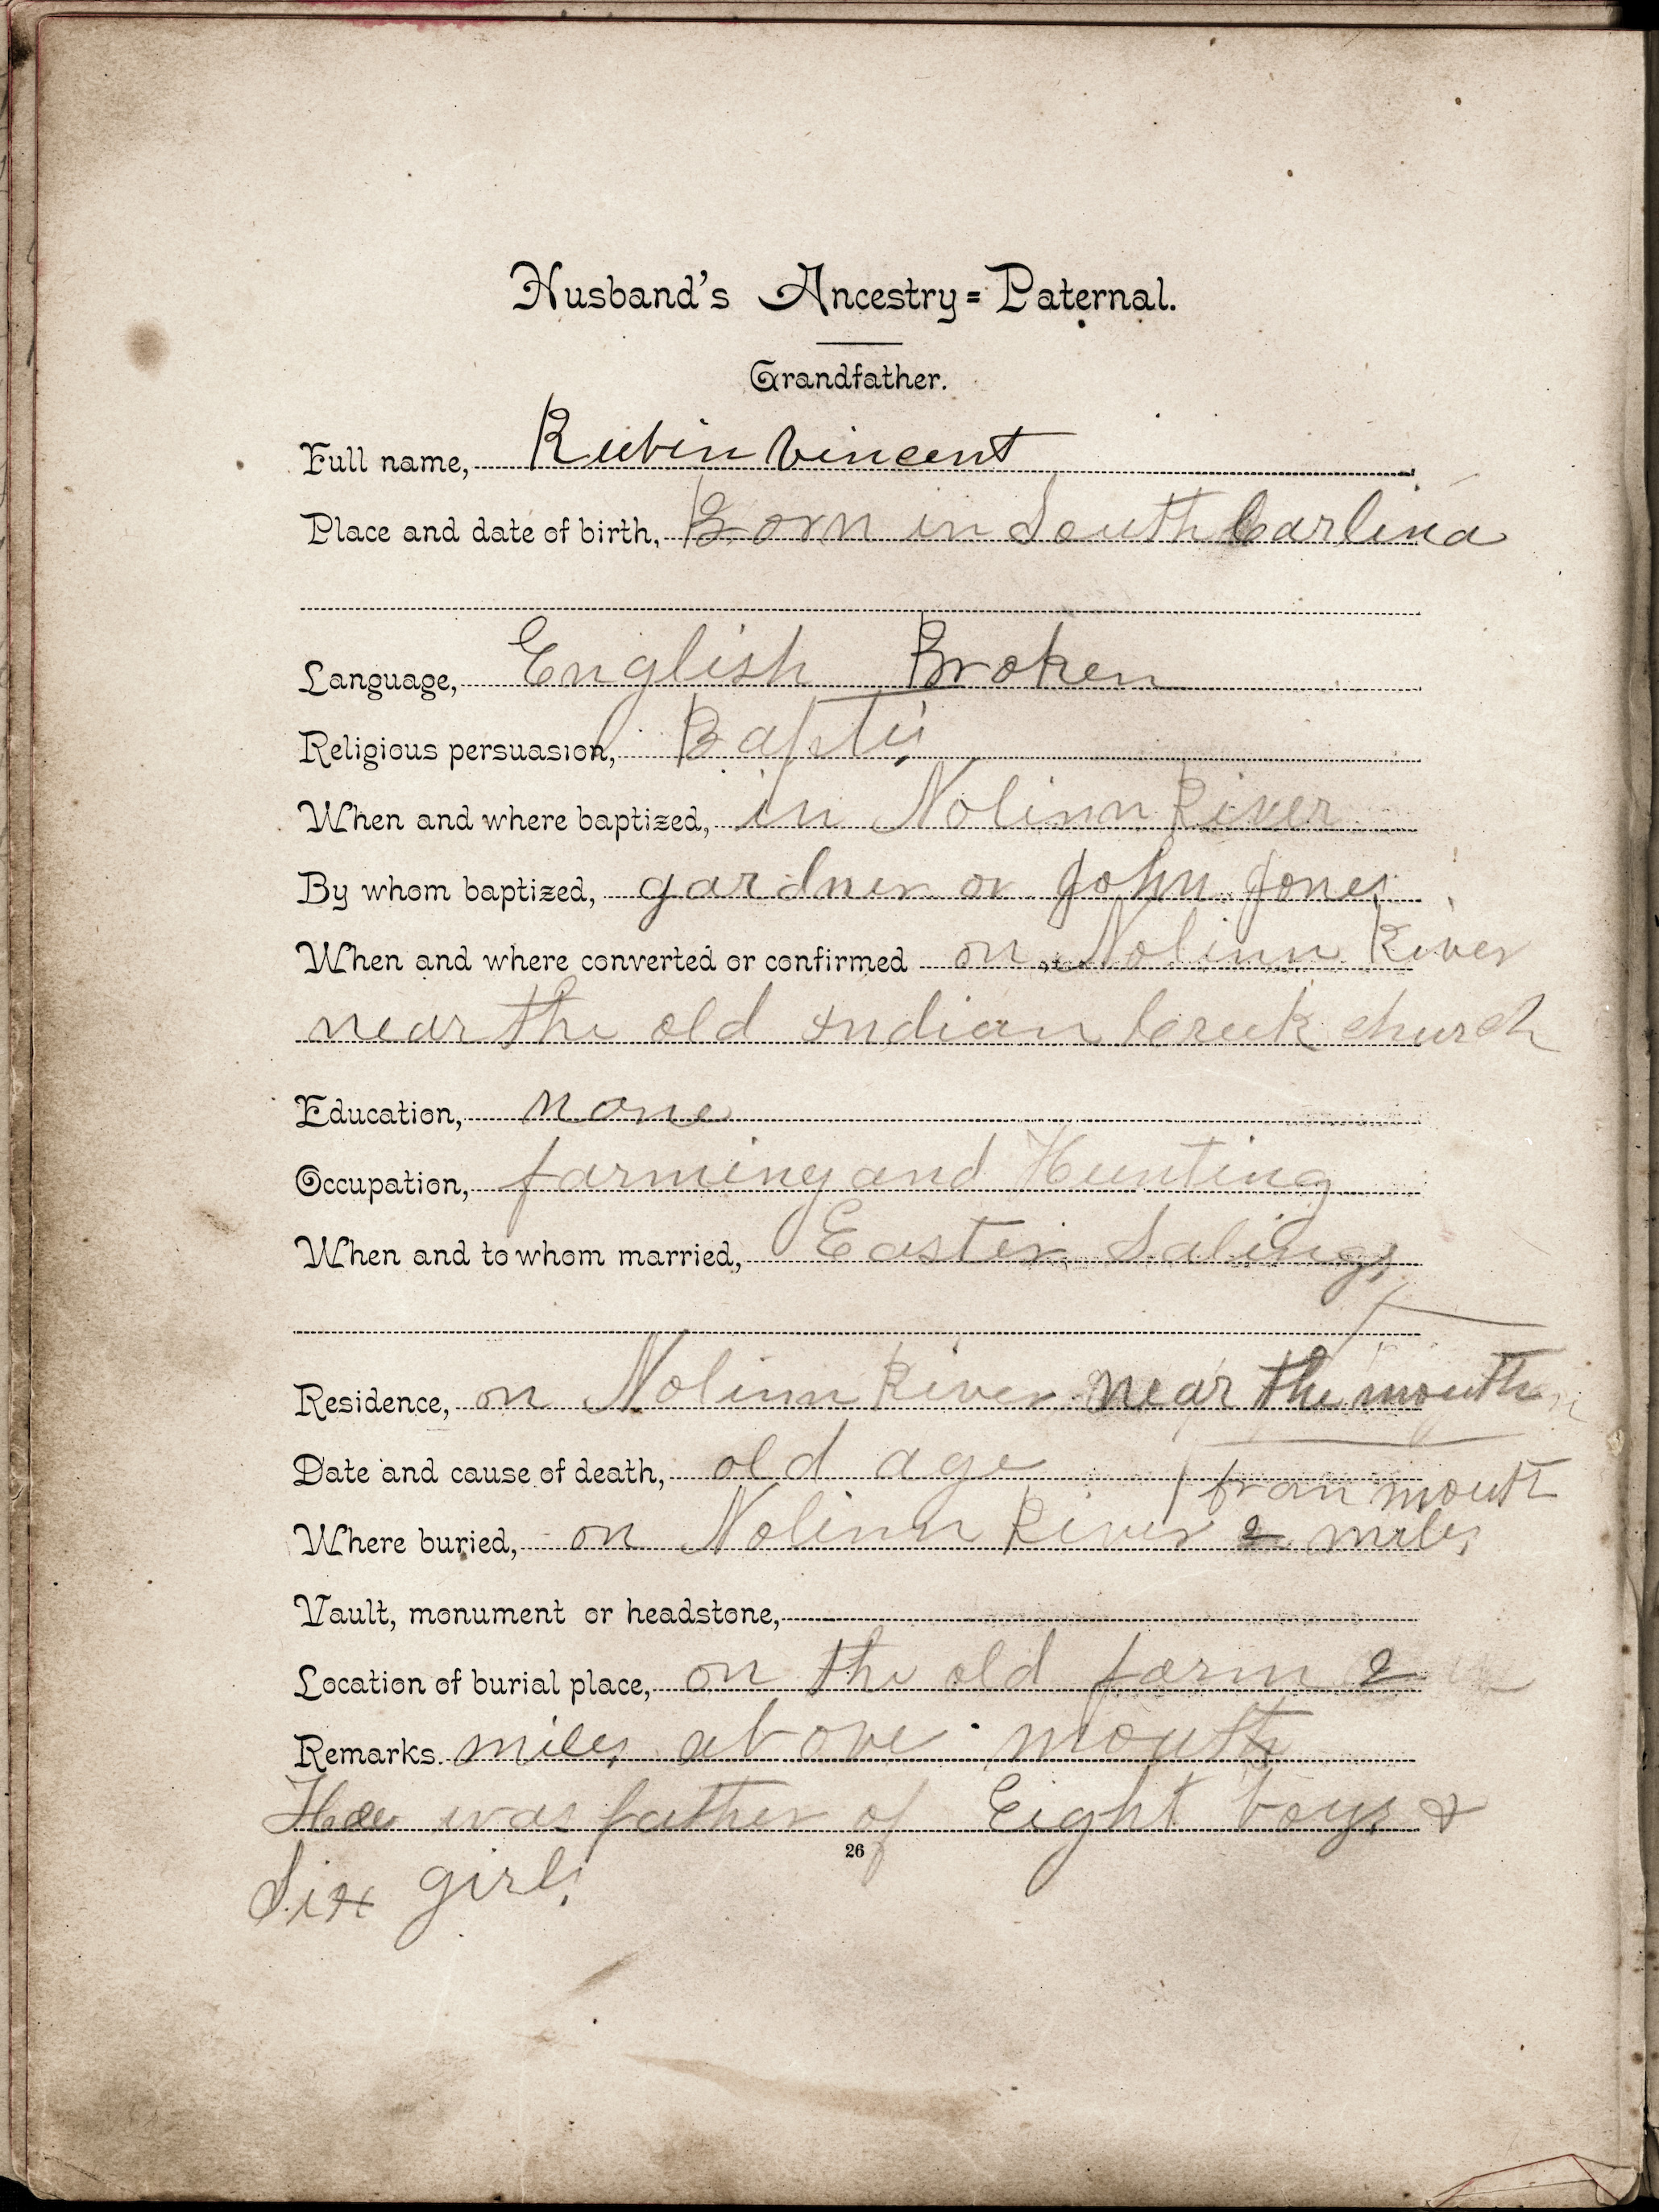 Husband's Ancestry=Paternal.
Grandfather.
Full name, Rubin Vincent
Place and date of birth, Born in South Carlina
Language, English Broken
Religious persuasion, Baptis
When and where baptized, in Nolinn River
By whom baptized, gardner or John Jones
When and where converted or confirmed on Nolinn River
near the old Indian Creek church
Education, none
Occupation, farming and Hunting
When and to whom married, Easter Salings
Residence, on Nolinn River near the mouth
Date and cause of death, old age
from mouth
Where buried, on Nolinn River 2 miles
Vault, monument or headstone,
Location of burial place, on the old farm 2
Remarks. miles above mouth
He was father of Eight boys &
Six girls
26